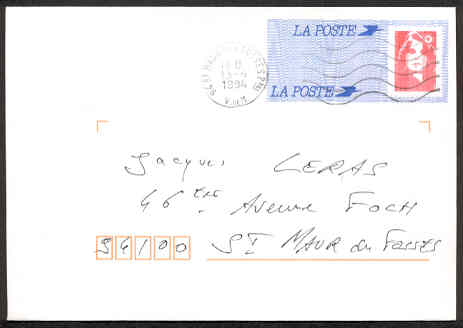 LA POSTE
LA POSTE
1994
Jacques LERAS
46 Avenue FOCH
94100 ST MAUR des FOSSÉS